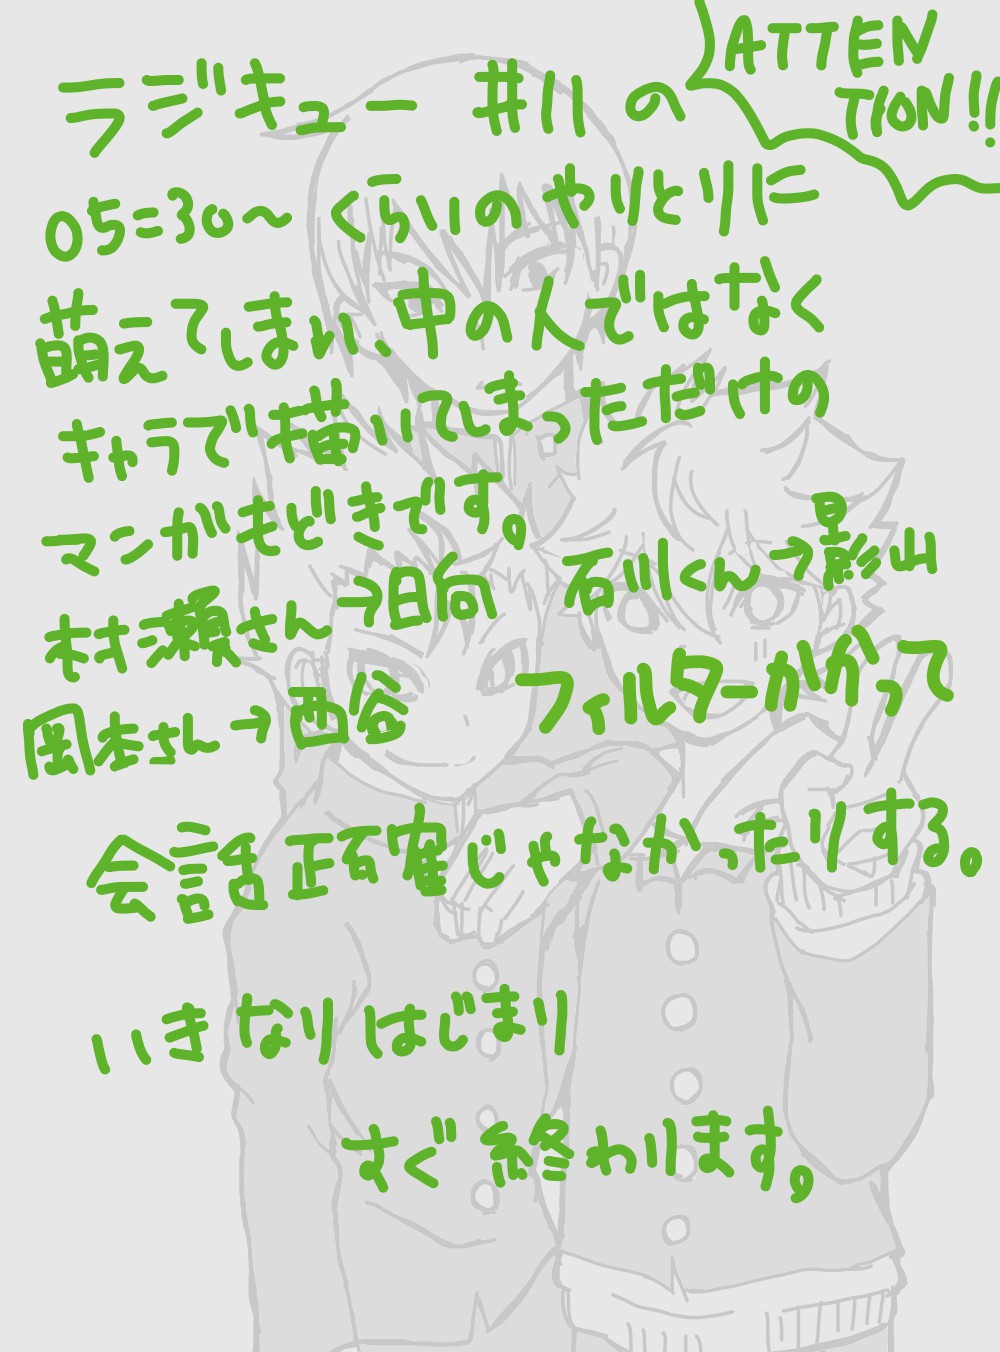 ATTEN
TION!!
ラジキュー #11 の
05:30〜くらいのやりとりに
萌えてしまい、中の人ではなく
キャラで描いてしまっただけの
マンガもどきです。
村瀬さん→日向 石川くん→影山
岡本さん→西谷 フィルターがかかって
会話正確じゃなかったりする。
いきなりはじまり
すぐ終わります。